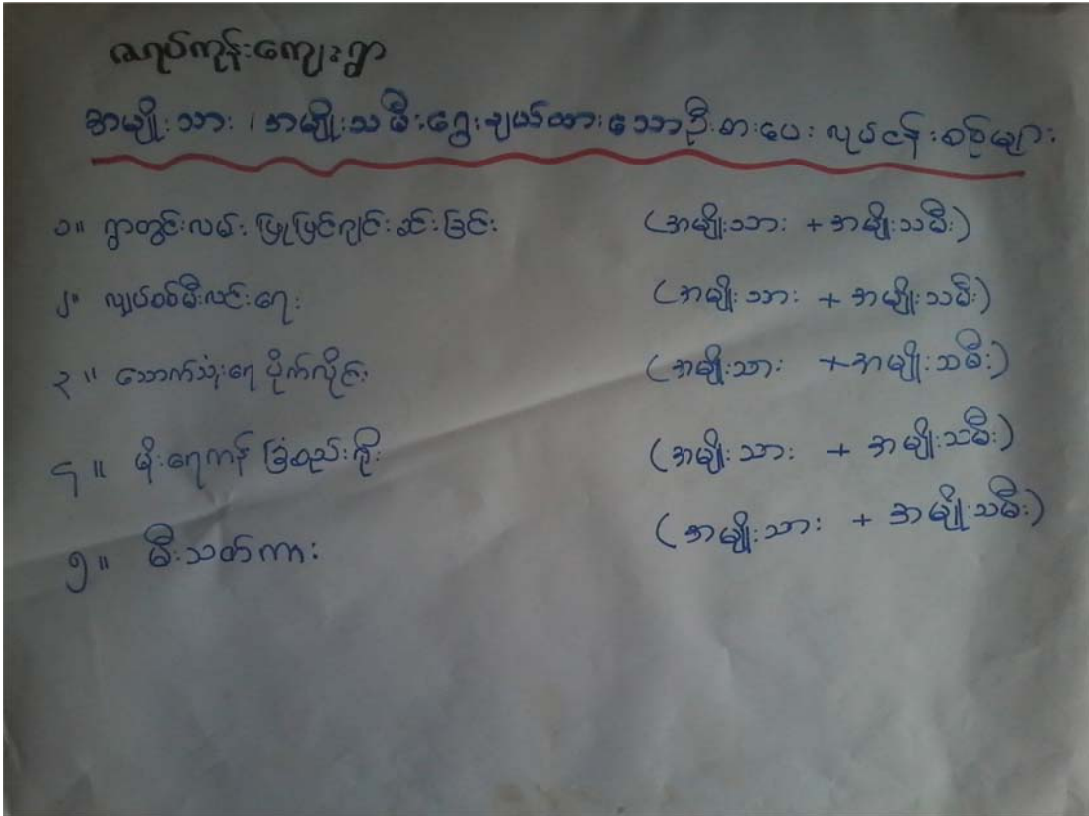 ဇရပ်ကုန်းကျေးရွာ
အမျိုးသား ၊ အမျိုးသမီးရွေးချယ်ထားသောဦးစားပေး လုပ်ငန်းစဉ်များ
၁။ ရွာတွင်းလမ်း ပြုပြင်ဂျင်းခင်းခြင်း (အမျိုးသား + အမျိုးသမီး)
၂။ လျှပ်စစ်မီးလင်းရေး (အမျိုးသား + အမျိုးသမီး)
၃။ သောက်သုံးရေ ပိုက်လိုင်း (အမျိုးသား + အမျိုးသမီး)
၄။ မိုးရေကန် ခြံစည်းရိုး (အမျိုးသား + အမျိုးသမီး)
၅။ မီးသတ်ကား (အမျိုးသား + အမျိုးသမီး)